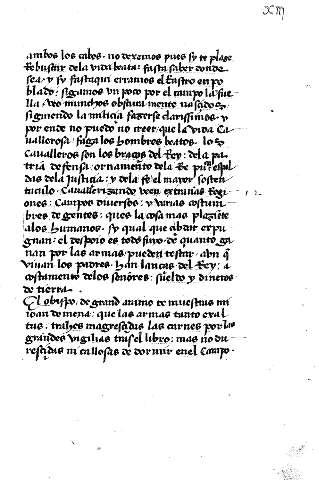 XIII
ambos los cabos. no dexemos pues sy te plaze
Rebuscar dela vida beata: fasta saber donde
sea. y sy fasta qui erramos el Rastro en po
blado: sigamos un poco por el campo la fue
lla. veo muchos obscura mente nasçidos
siguiendo la miliçia fazerse clarissimos. y
por ende no puedo no creer que la vida Ca
uallerosa: faga los hombres beatos. los
Caualleros son los braços del Rey: dela pa
tria defensa: ornamento dela Re pu espal
das dela justiçia: y dela fe el mayor sosten
taculo. Cauallerizando veen extrañas Regi
ones: Campos diuersos: y varias costum
bres de gentes: ques la cosa mas plaziente
alos humanos. sy qual que abdat expu
gnan: el despojo es todo suyo. de quanto ga
nan por las armas pueden testar. abn q
viuan los padres. han lanças del Rey: a
costamiento delos señores: sueldo y dineros
de tierra.
El obispo. de grand animo te muestras mi
ioan de mena: que las armas tanto exal
tas. trahes magresçidas las carnes por las
grandes vigilias tras el libro: mas no du
resçidas ni callosas de dormir enel Campo.